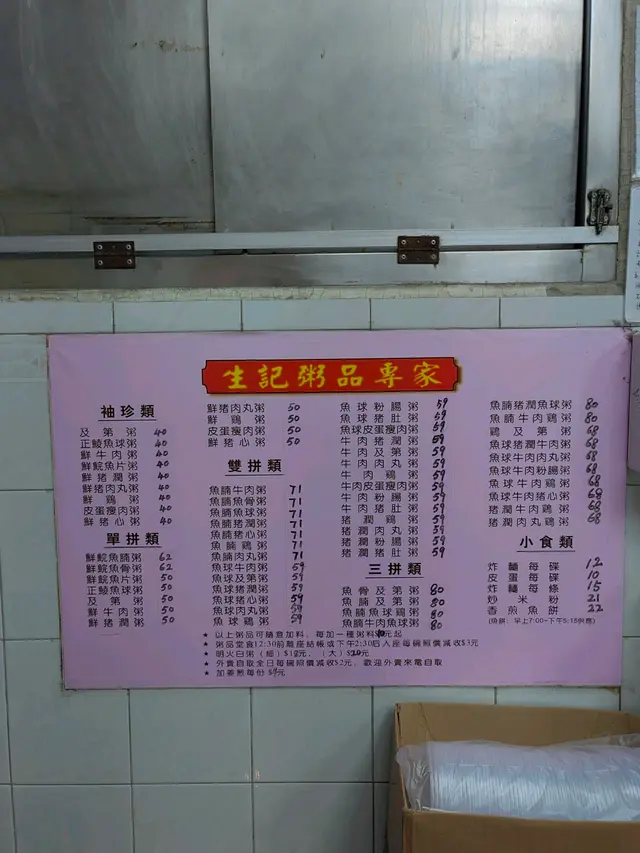 生記粥品專家
袖珍類
及第粥 40
正鯪魚球粥 40
鮮牛肉粥 40
鮮鯇魚片粥 40
鮮豬潤粥 40
鮮豬肉丸粥 40
鮮鷄粥 40
皮蛋瘦肉粥 40
鮮豬心粥 40
單拼類
鮮鯇魚腩粥 62
鮮鯇魚骨粥 62
鮮鯇魚片粥 50
正鯪魚球粥 50
及第粥 50
鮮牛肉粥 50
鮮豬潤粥 50
鮮豬肉丸粥 50
鮮鷄粥 50
皮蛋瘦肉粥 50
鮮豬心粥 50
雙拼類
魚腩牛肉粥 71
魚腩魚骨粥 71
魚腩魚球粥 71
魚腩豬潤粥 71
魚腩豬心粥 71
魚腩鷄粥 71
魚腩肉丸粥 71
魚球牛肉粥 59
魚球及第粥 59
魚球豬潤粥 59
魚球豬心粥 59
魚球肉丸粥 59
魚球鷄粥 59
魚球粉腸粥 59
魚球豬肚粥 59
魚球皮蛋瘦肉粥 59
牛肉豬潤粥 59
牛肉及第粥 59
牛肉肉丸粥 59
牛肉鷄粥 59
牛肉皮蛋瘦肉粥 59
牛肉粉腸粥 59
牛肉豬肚粥 59
豬潤鷄粥 59
豬潤肉丸粥 59
豬潤粉腸粥 59
豬潤豬肚粥 59
三拼類
魚骨及第粥 80
魚腩及第粥 80
魚腩魚球鷄粥 80
魚腩牛肉魚球粥 80
魚腩豬潤魚球粥 80
魚腩牛肉鷄粥 80
鷄及第粥 68
魚球豬潤牛肉粥 68
魚球牛肉肉丸粥 68
魚球牛肉粉腸粥 68
魚球牛肉鷄粥 68
魚球牛肉豬心粥 68
豬潤牛肉鷄粥 68
豬潤肉丸鷄粥 68
小食類
炸麵每碟 12
皮蛋每碟 10
炸麵每條 15
炒米粉 21
香煎魚餅 22
(魚餅:早上7:00-下午5:15供應)
★ 以上粥品可隨意加料,每加一種粥料 元起
★ 粥品堂食12:30前離座結帳或下午2:30后入座每碗照價減收$3元
★ 明火白粥(細)$ 元,(大)$20元
★ 外賣自取全日每碗照價減收$2元,歡迎外賣來電自取
★ 加姜葱每份$ 元